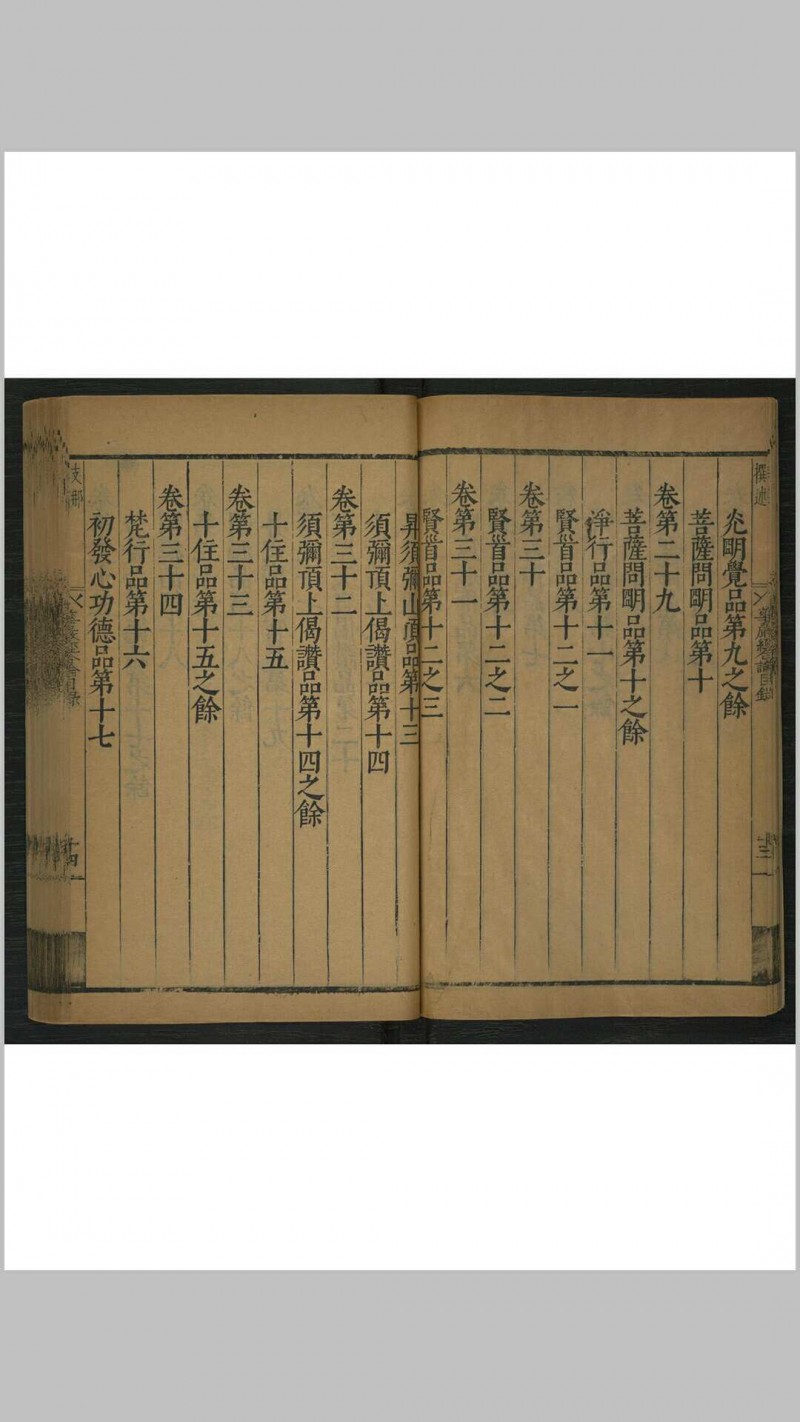 撰述
華嚴經合論目錄
十三
光明覺品第九之餘
菩薩問明品第十
卷第二十九
菩薩問明品第十之餘
淨行品第十一
賢首品第十二之一
卷第三十
賢首品第十二之二
卷第三十一
賢首品第十二之三
昇須彌山頂品第十三
須彌頂上偈讚品第十四
卷第三十二
須彌頂上偈讚品第十四之餘
十住品第十五
卷第三十三
十住品第十五之餘
卷第三十四
梵行品第十六
初發心功德品第十七
支那
華嚴經合論目錄
十四